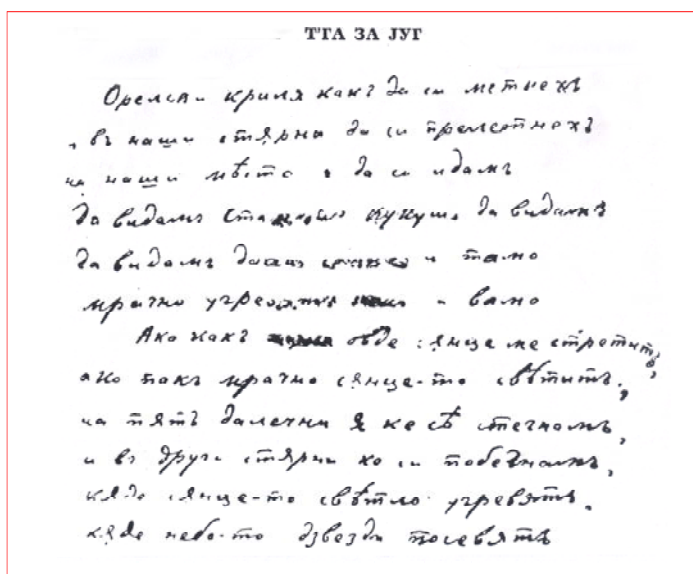 ТГА ЗА ЈУГ
Орелски криля какъ да си метнехъ
въ наши стърни да си прелетнехъ
на наши мѣста да си идамъ
да видамъ Стамболъ Кукушъ да видамъ
да видамъ дали и тамо
мрачно угреваитъ и вамо
Ако какъ овде сянце ме стретитъ,
ако пакъ мрачно сянце-то свѣтитъ,
на пятъ далечни я ке сѣ стегнамъ,
и въ други стярни ке си побегнамъ,
кяде сянце-то свѣтло угревятъ,
кяде небо-то дзвезди посевятъ